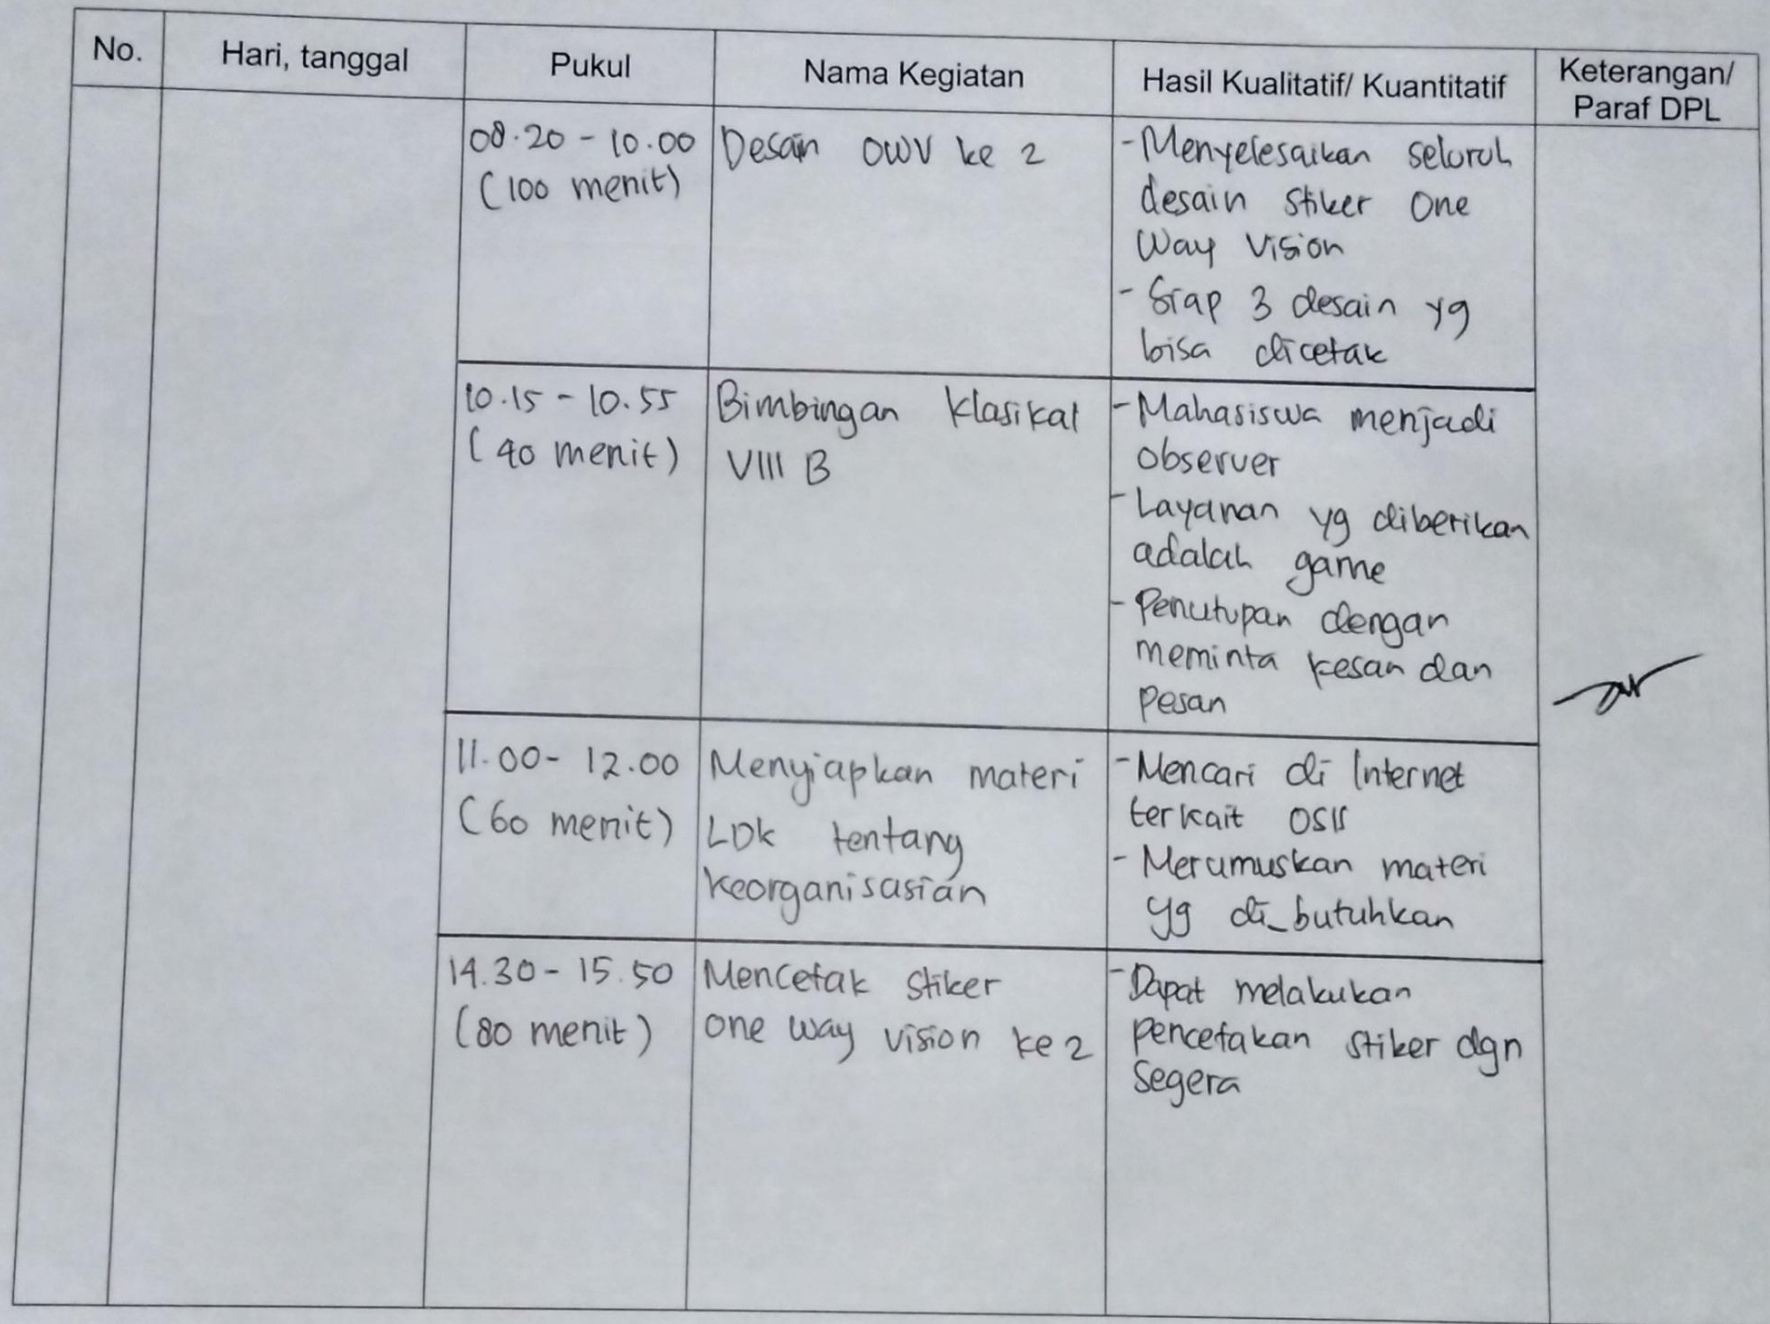 No.
Hari, tanggal
Pukul
Nama Kegiatan
Hasil Kualitatif/ Kuantitatif
Keterangan/
Paraf DPL
08.20 - 10.00
(100 menit)
Desain OWV ke 2
- Menyelesaikan seluruh
desain stiker One
Way Vision
- Siap 3 desain yg
bisa dicetak
10.15 - 10.55
(40 menit)
Bimbingan klasikal
VIII B
- Mahasiswa menjadi
observer
- Layanan yg diberikan
adalah game
- Penutupan dengan
meminta kesan dan
pesan
11.00 - 12.00
(60 menit)
Menyiapkan materi
LDK tentang
keorganisasian
- Mencari di Internet
terkait OSIS
- Merumuskan materi
yg di_butuhkan
14.30 - 15.50
(80 menit)
Mencetak stiker
one way vision ke 2
- Dapat melakukan
pencetakan stiker dgn
segera